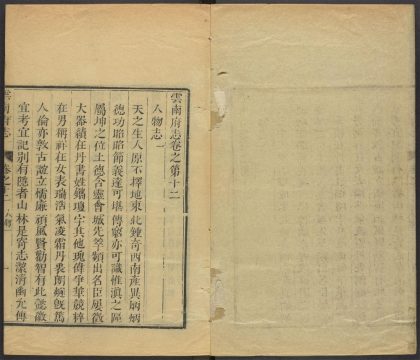 雲南府志卷之第十二
人物志一
天之生人原不擇地東北鍾奇西南産異炳炳
德功昭昭節義達可堪傳窮亦可識惟滇之區
屬坤之位土德含靈會城先萃類出名臣屢徵
大器績在丹書姓鐫瓊字其他瑰偉爭華競粹
在男稱祥在女表瑞浩氣凌霜丹衷朗
人倫亦敦古誼立懦廉頑風賢勸智有此懿徽
宜考宜記別有隱者山林是寄志潔清幽允傳
雲南府志
卷之十二 人物一